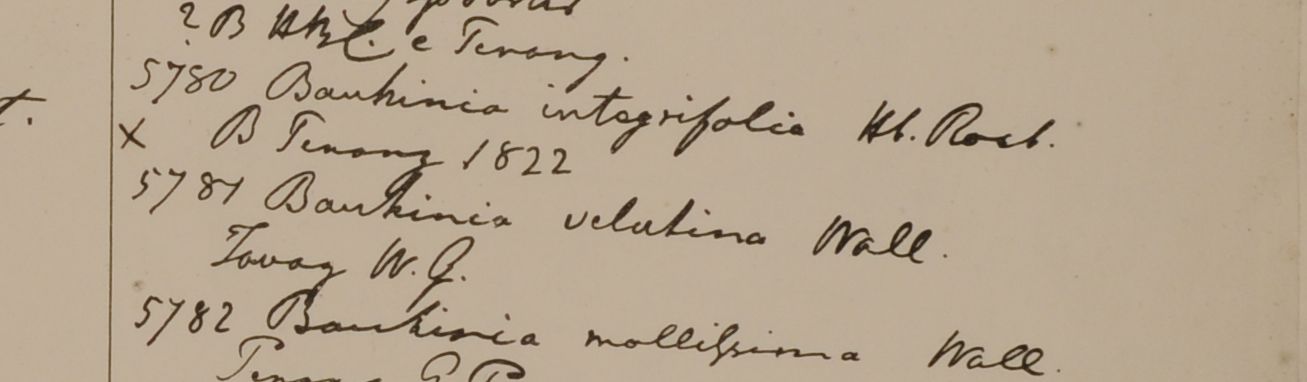 ? B Hb. e Penang.
5780 Bauhinia integrifolia Hb. Roxb.
t.
x B Penang 1822
5781 Bauhinia velutina Wall.
Tavoy W. G.
5782 Bauhinia mollissima Wall.
Penang G. P